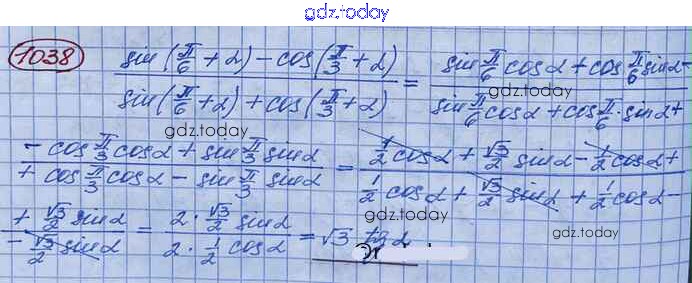 gdz.today
1038 sin(π/6 + α) − cos(π/3 + α) / sin(π/6 + α) + cos(π/3 + α) = sin π/6 cos α + cos π/6 sin α − / sin π/6 cos α + cos π/6 · sin α +
gdz.today
gdz.today
− cos π/3 cos α + sin π/3 sin α / + cos π/3 cos α − sin π/3 sin α = 1/2 cos α + √3/2 sin α − 1/2 cos α + / 1/2 cos α + √3/2 sin α + 1/2 cos α −
+ √3/2 sin α / − √3/2 sin α = 2 · √3/2 sin α / 2 · 1/2 cos α = √3 tg α
gdz.today